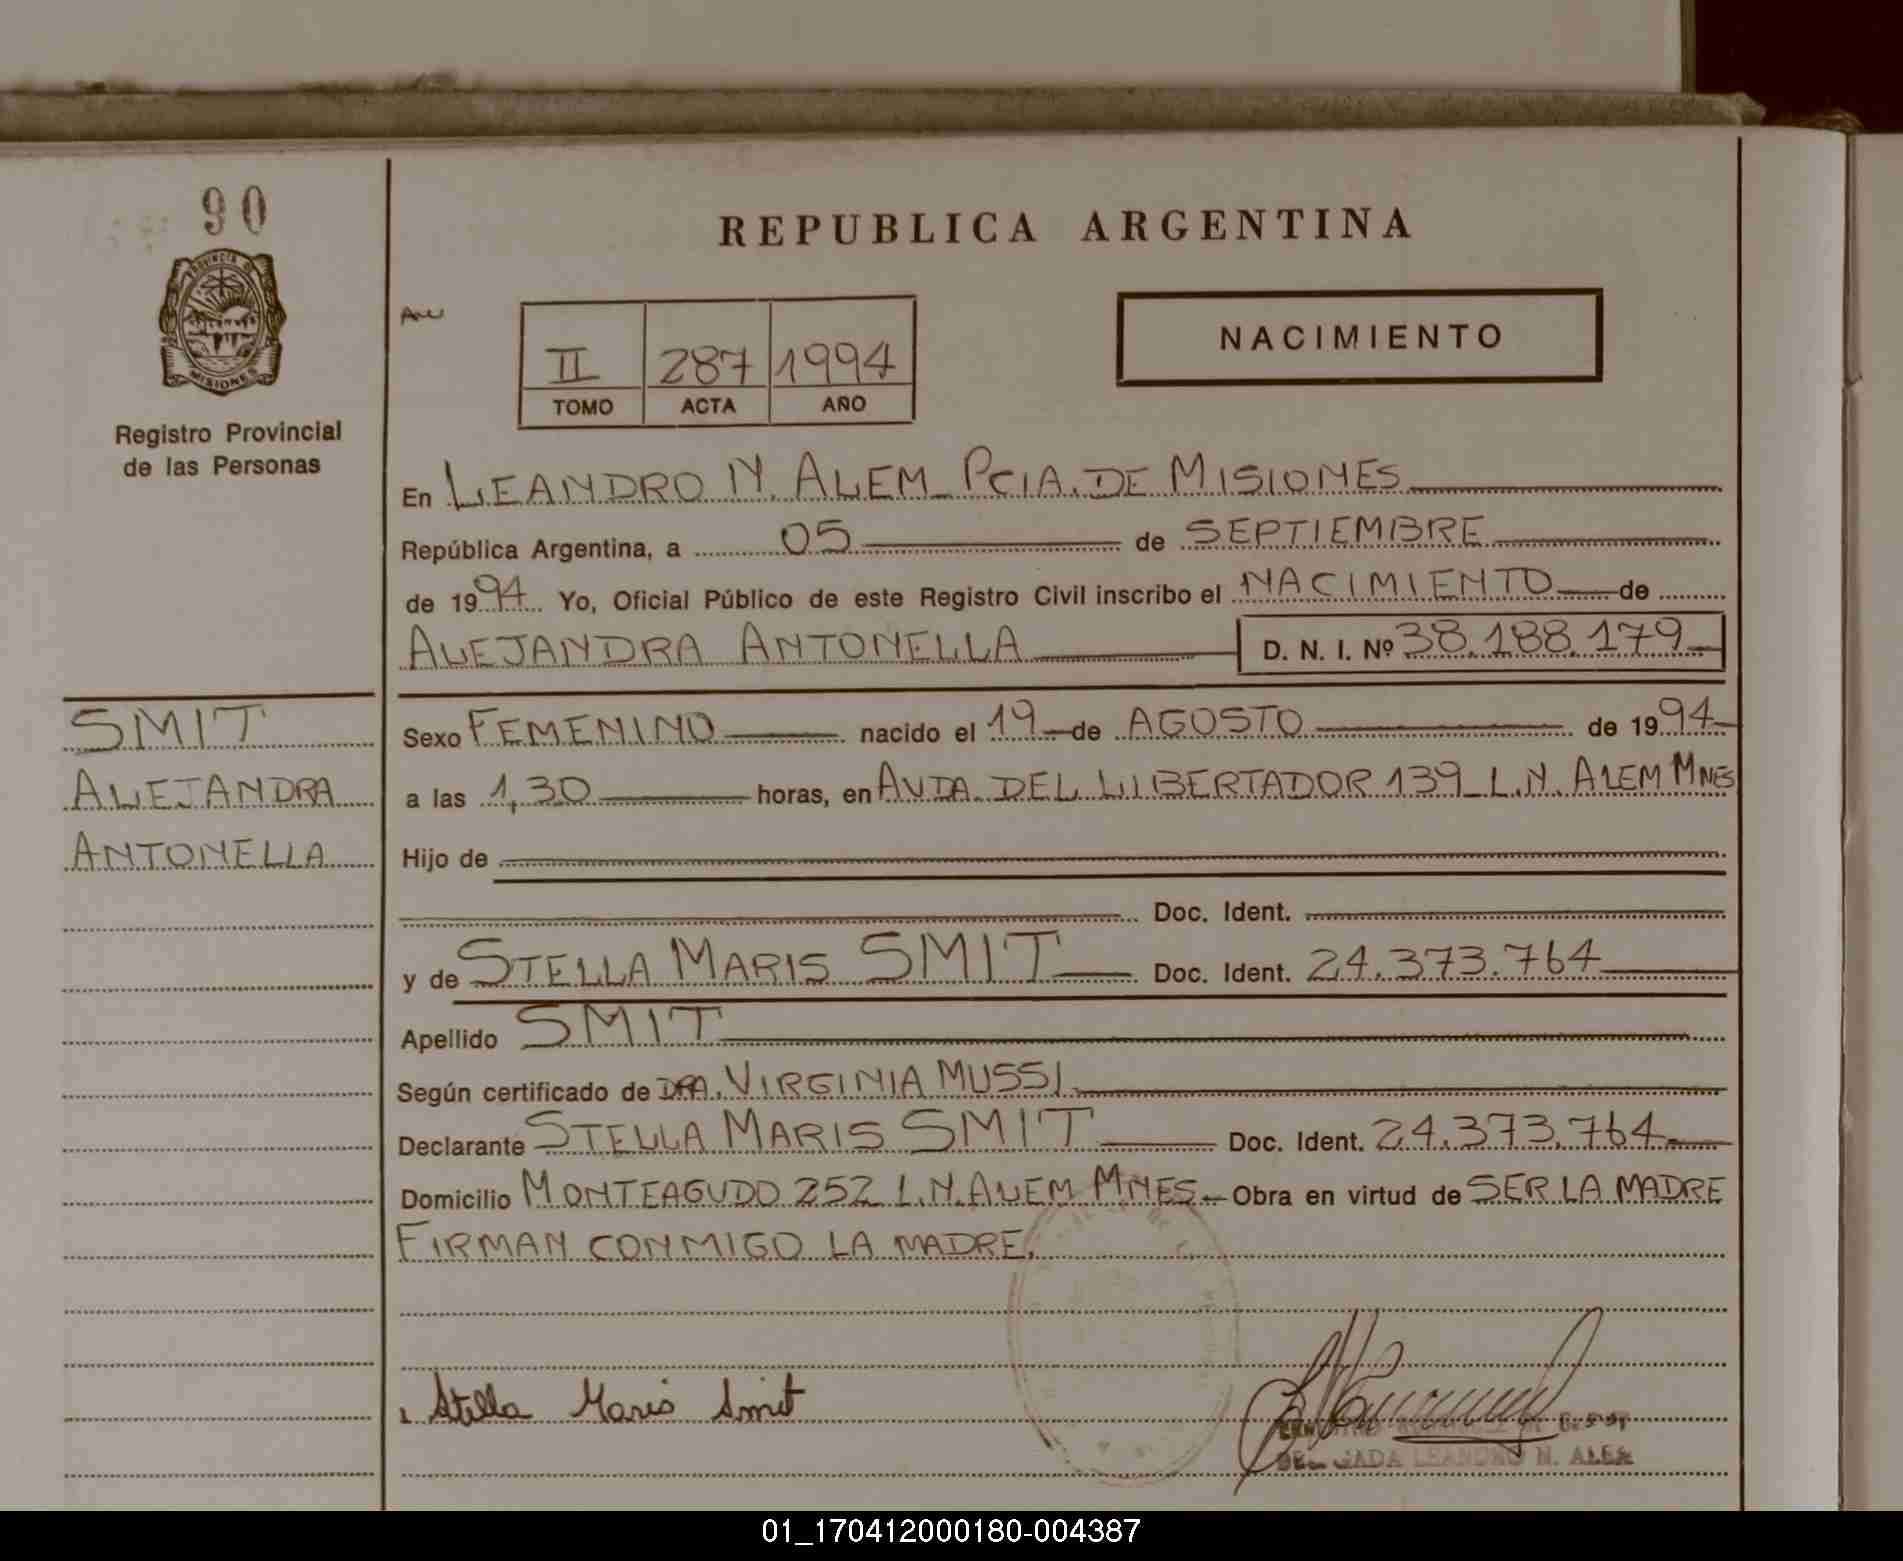 90
PROVINCIA DE
MISIONES
Registro Provincial
de las Personas
REPUBLICA ARGENTINA
II 287 1994
TOMO ACTA AÑO
NACIMIENTO
En LEANDRO N. ALEM PCIA. DE MISIONES
República Argentina, a 05 de SEPTIEMBRE
de 1994 Yo, Oficial Público de este Registro Civil inscribo el NACIMIENTO de
ALEJANDRA ANTONELLA D. N. I. Nº 38.188.179
SMIT
ALEJANDRA
ANTONELLA
Sexo FEMENINO nacido el 19 de AGOSTO de 1994
a las 1,30 horas, en AVDA. DEL LIBERTADOR 139 L.N. ALEM MNES
Hijo de
Doc. Ident.
y de STELLA MARIS SMIT Doc. Ident. 24.373.764
Apellido SMIT
Según certificado de DRA. VIRGINIA MUSSI
Declarante STELLA MARIS SMIT Doc. Ident. 24.373.764
Domicilio MONTEAGUDO 252 L.N. ALEM MNES. Obra en virtud de SER LA MADRE
FIRMAN CONMIGO LA MADRE.
Stella Maris Smit
LEANDRO N. ALEM
01_170412000180-004387